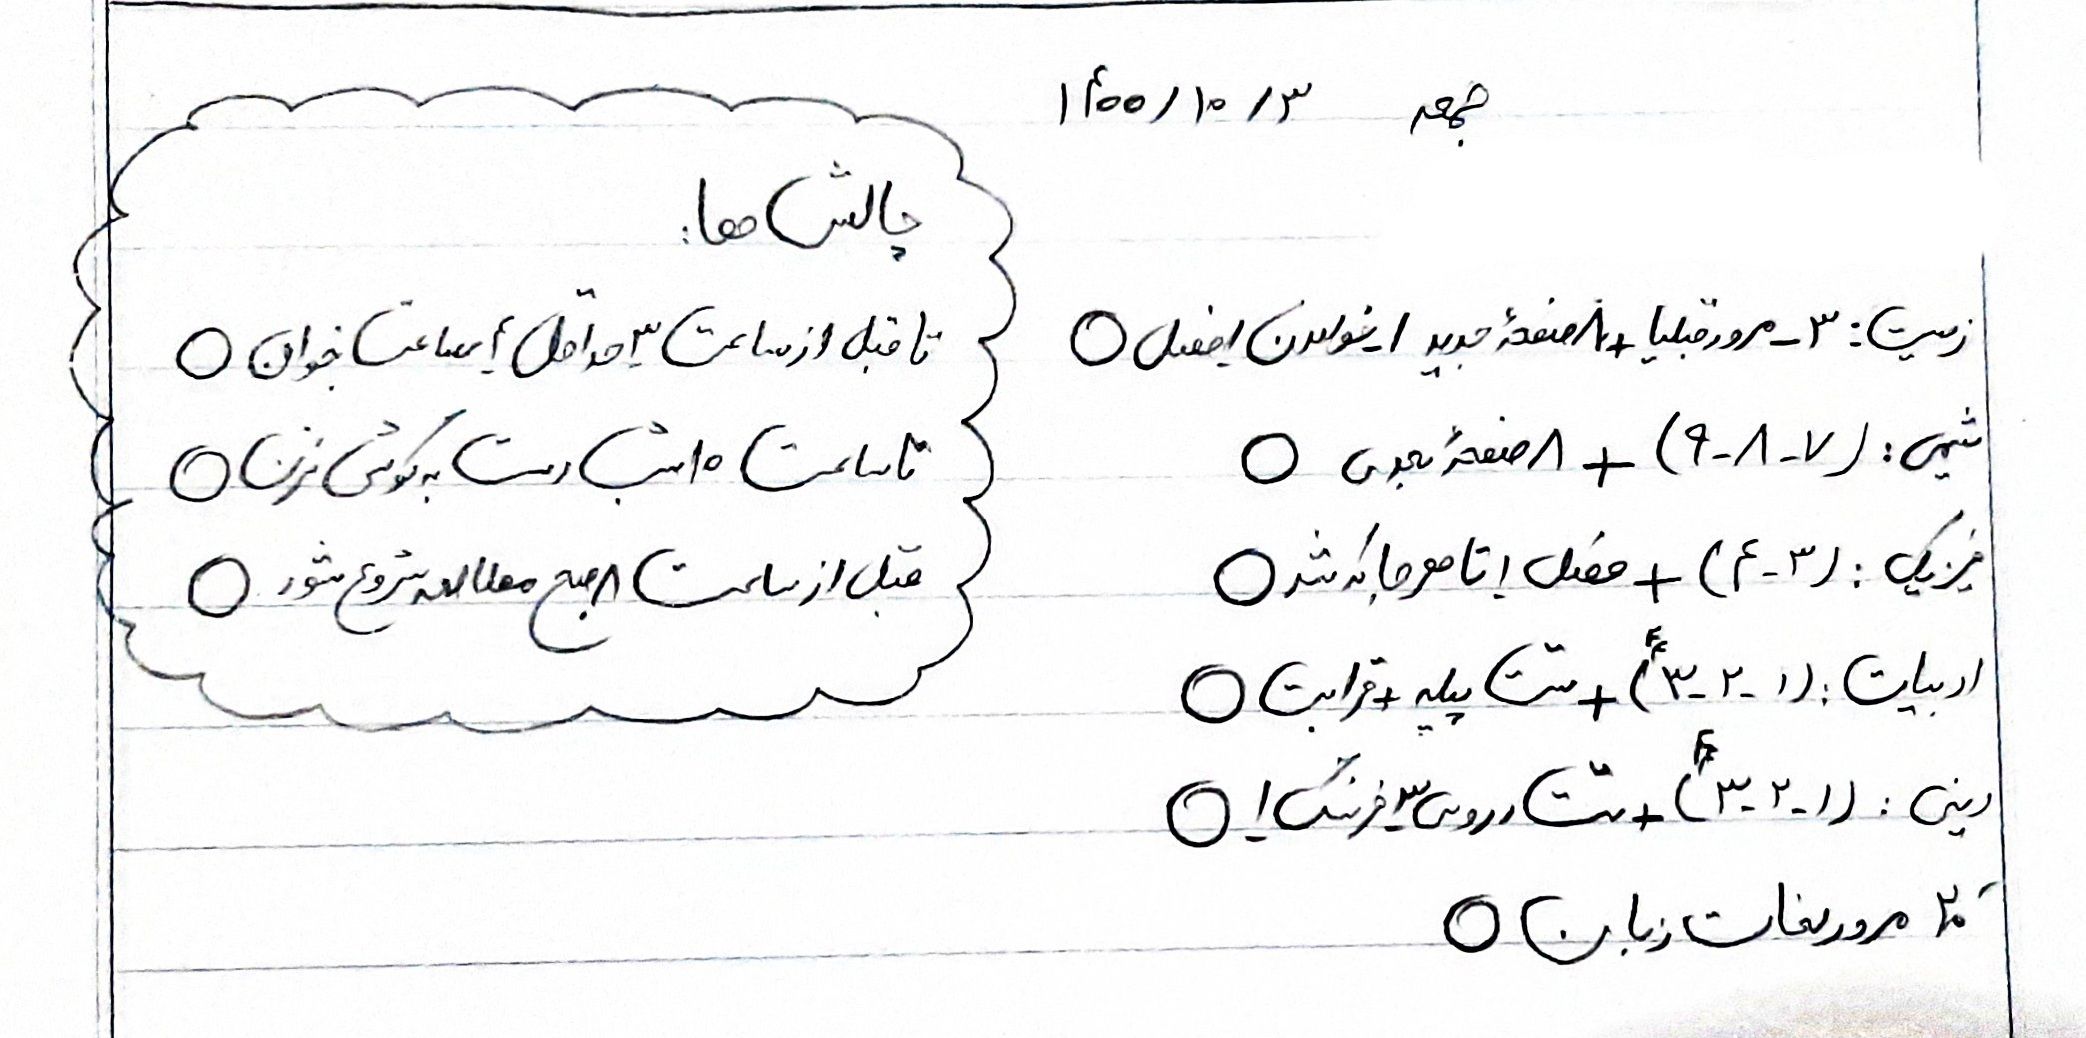 جمعه ۱۴۰۰/۱۰/۳
زیست: ۳- مرور قبلیا + ۸ صفحهٔ جدید ۱- خواندن فصل ○
شیمی: (۷-۸-۹) + ۸ صفحهٔ بعدی ○
فیزیک: (۳-۴) + فصل ۱ تا هرجا که شد ○
ادبیات: (۱-۲-۳-۴) + تست پایه + قرابت ○
دینی: (۱-۲-۳-۴) + تست درس ۳ ○
۲۰ مرور لغات زبان ○
چالش ها:
تا قبل از ساعت ۳ حداقل ۶ ساعت بخوان ○
تا ساعت ۱۰ شب دست به گوشی نزن ○
قبل از ساعت ۸ صبح مطالعه شروع شود ○